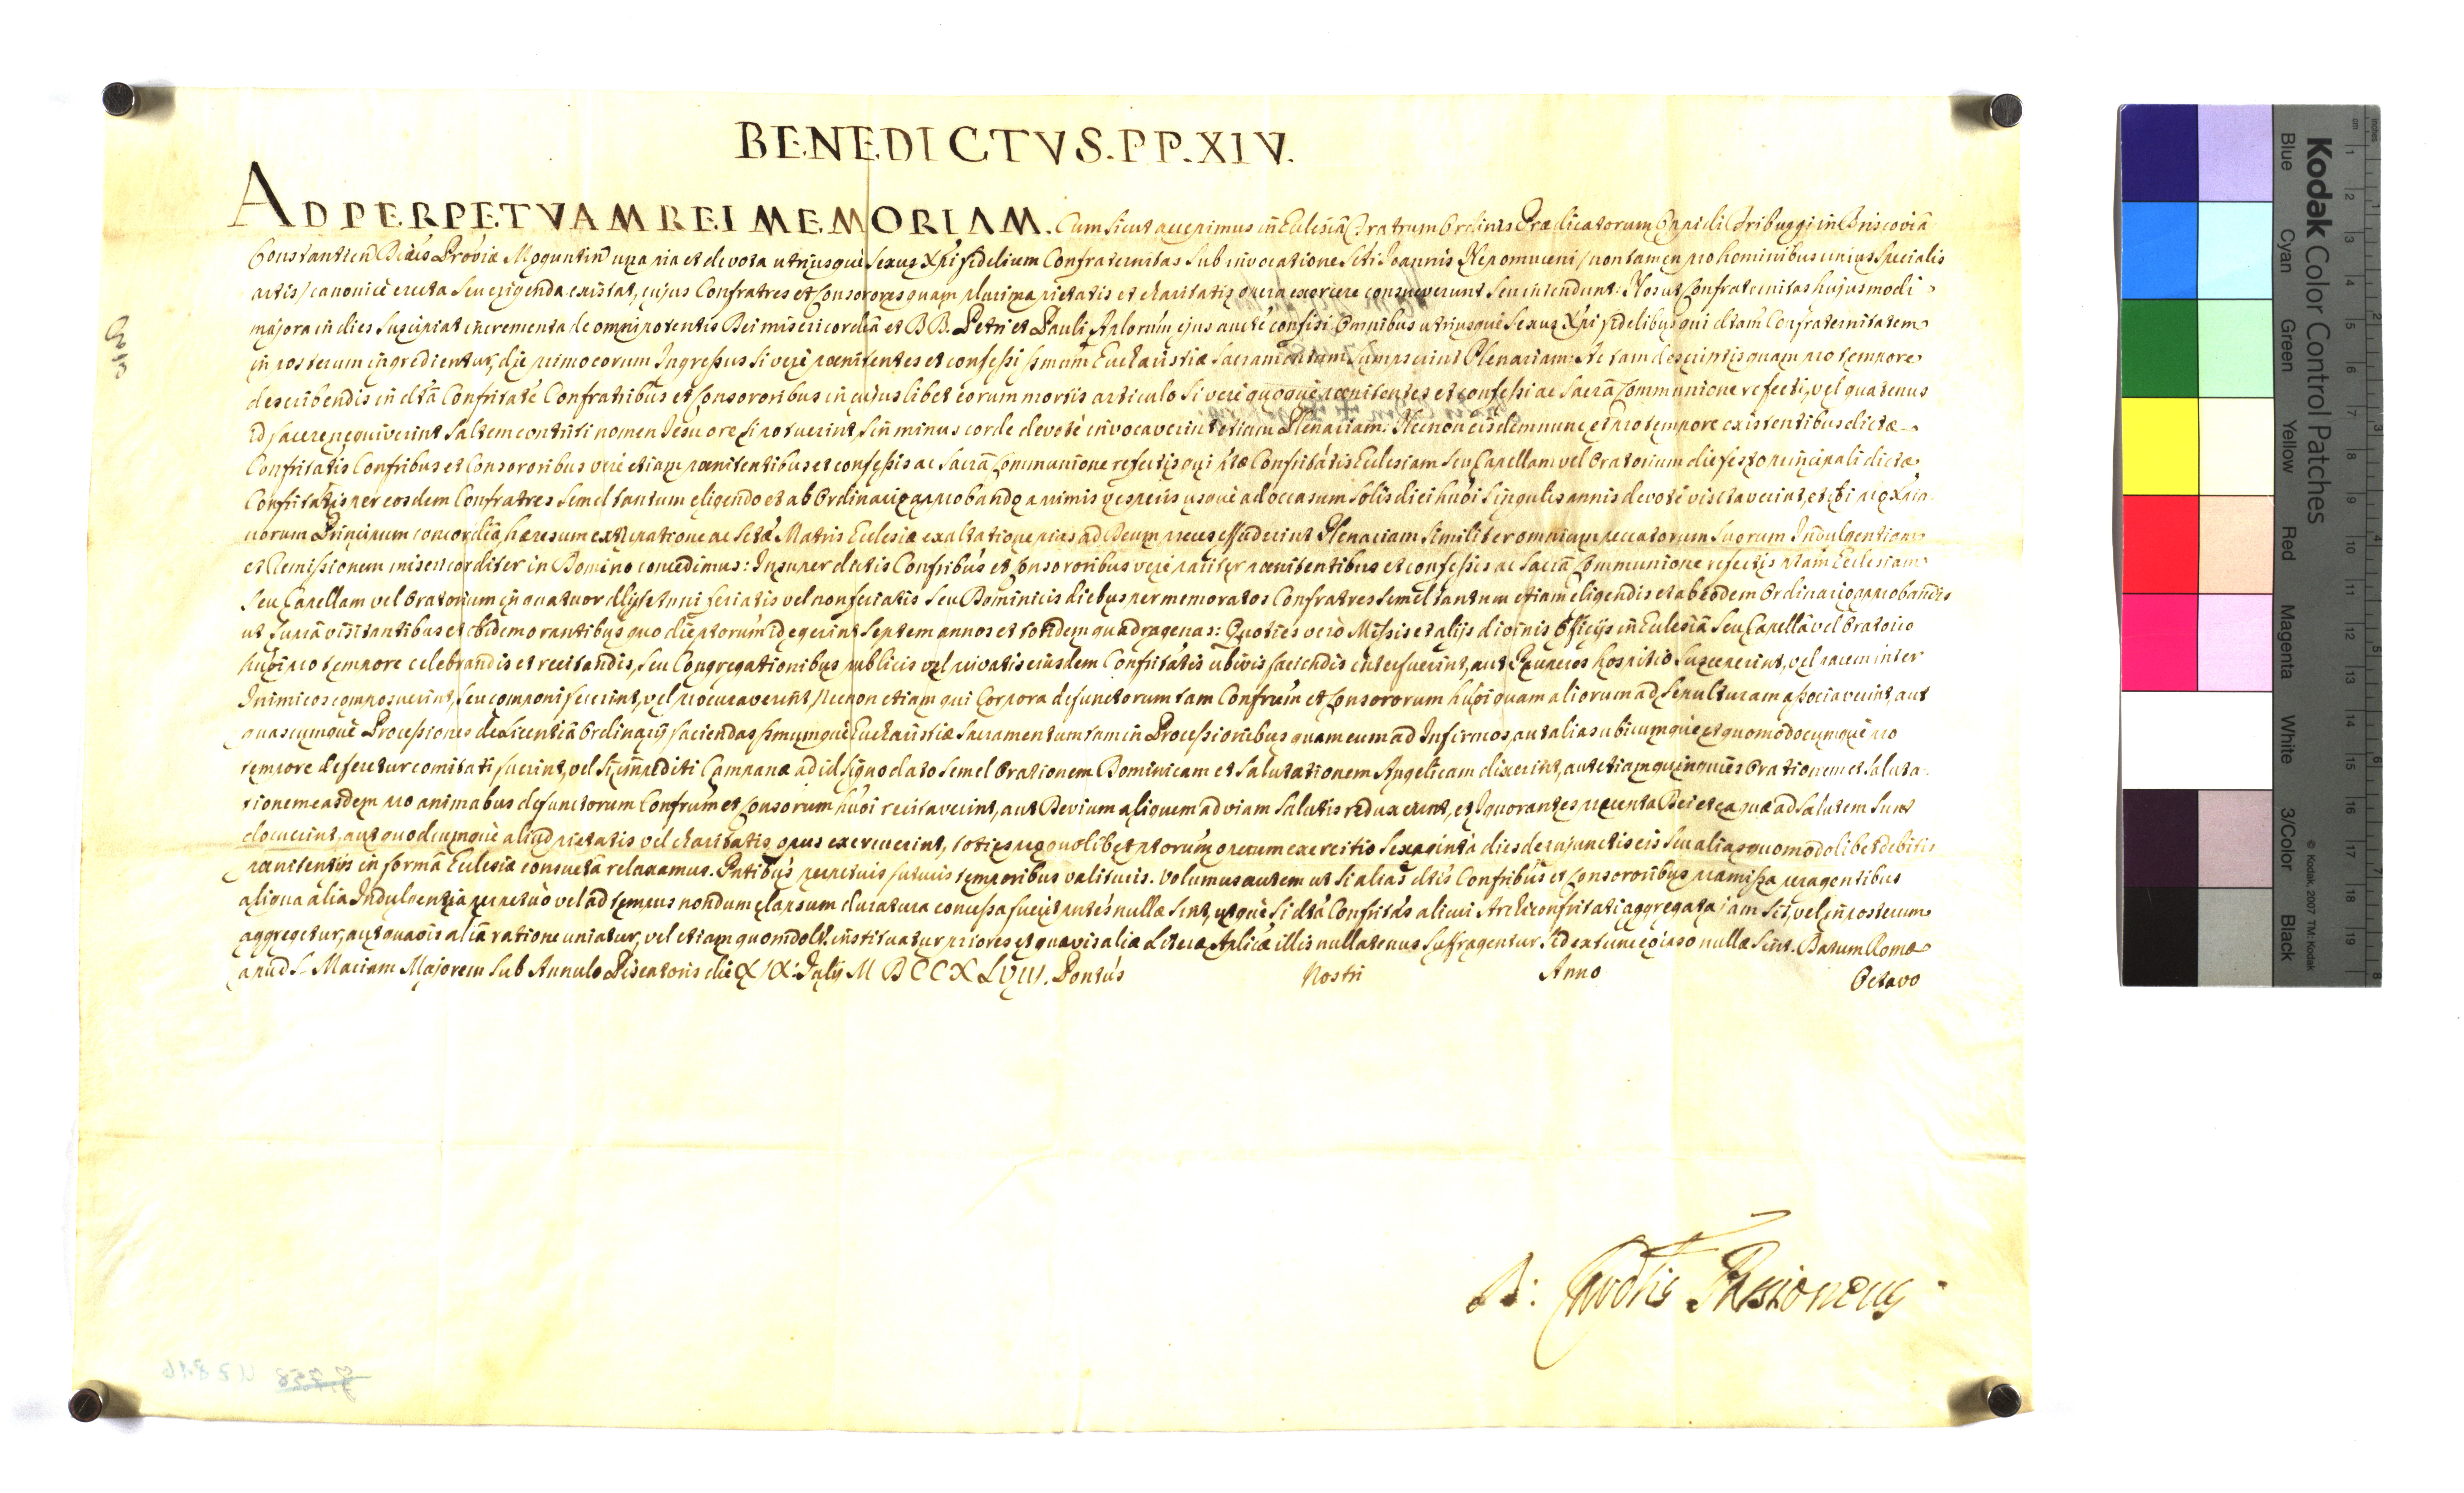 BENEDICTVS.PP.XIV.
AD PERPETVAM REI MEMORIAM. Cum sicut accepimus in Ecclesiâ Fratrum Ordinis Prædicatorum Oppidi Friburgi in Briscoviâ
Constantien Diæcis Proviæ Moguntin una pia et devota utriusquè Sexus Xpi fidelium Confraternitas Sub invocatione Scti Joannis Nepomuceni /non tamen pro hominibus unius Specialis
artis/ canonicè erecta Seu erigenda existat, cujus Confratres et Consorores quam plurima pietatis et charitatis opera exercere consueverunt Seu intendunt: Nos ut Confraternitas hujusmodi
majora in dies Suscipiat incrementa de omnipotentis Dei misericordiâ et BB. Petri et Pauli Aplorum ejus aucte confisi Omnibus utriusquè Sexus Xpi fidelibus qui dtam Confraternitatem
in posterum ingredientur, die primo eorum Ingressus Si verè pœnitentes et confessi Smum Eucharistiæ Sacramentum Sumpserint Plenariam: Ac tam descriptis quam pro tempore
describendis in dtâ Confritate Confratribus et Consororibus in cujuslibet eorum mortis articulo Si verè quoquè pœnitentes et confessi ac Sacrâ Communione refecti, vel quatenus
id facere nequiverint Saltem contriti nomen Jesu ore Si potuerint, Sin minus corde devotè invocaverint etiam Plenariam: Necnon eisdem nunc et pro tempore existentibus dictæ
Confritatis Confribus et Consororibus verè etiam pœnitentibus et confessis ac Sacrâ Communione refectis qui ptæ Confritatis Ecclesiam Seu Capellam vel Oratorium die festo principali dictæ
Confritatis per eosdem Confratres Semel tantum eligendo et ab Ordinario approbando a primis vesperis usquè ad occasum Solis diei huoi Singulis annis devotè visitaverint, et ibi pro Xpia-
norum Principum concordiâ, hæresum extirpatione ac Sctæ Matris Ecclesiæ exaltatione pias ad Deum preces effuderint Plenariam Similiter omnium peccatorum Suorum Indulgentiam
et Remissionem misericorditer in Domino concedimus: Insuper dictis Confribus et Consororibus verè pariter pœnitentibus et confessis ac Sacrâ Communione refectis ptam Ecclesiam
Seu Capellam vel Oratorium in quatuor alijs anni feriatis vel non feriatis Seu Dominicis diebus per memoratos Confratres Semel tantum etiam eligendis et ab eodem Ordinario approbandis
ut Suprâ visitantibus et ibidem orantibus quo die ptorum id egerint Septem annos et totidem quadragenas: Quoties verò Missis et alijs divinis Officijs in Ecclesiâ Seu Capellâ vel Oratorio
huoi pro tempore celebrandis et recitandis, Seu Congregationibus publicis vel privatis ejusdem Confritatis ubivis faciendis interfuerint, aut Pauperes hospitio Susceperint, vel pacem inter
Inimicos composuerint, Seu componi fecerint, vel procuraverint, Necnon etiam qui Corpora defunctorum tam Confrum et Consororum huoi quam aliorum ad Sepulturam associaverint, aut
quascumquè Processiones de Licentiâ Ordinarij faciendas Smumquè Eucharistiæ Sacramentum tam in Processionibus quam cum ad Infirmos, aut alias ubicumquè et quomodocumquè pro
tempore deferetur comitati fuerint, vel Si impediti Campanæ ad id Signo dato Semel Orationem Dominicam et Salutationem Angelicam dixerint, aut etiam quinquies Orationem et Saluta-
tionem easdem pro animabus defunctorum Confrum et Consorum huoi recitaverint, aut Devium aliquem ad viam Salutis reduxerint, et Ignorantes præcepta Dei et ea quæ ad Salutem Sunt
docuerint, aut quodcumquè aliud pietatis vel charitatis opus exercuerint, toties pro quolibet ptorum operum exercitio Sexagintâ dies de injunctis eis Seu alias quomodolibet debitis
pœnitentijs in formâ Ecclesiæ consuetâ relaxamus. Pntibus perpetuis futuris temporibus valituris. Volumus autem ut Si alias dtis Confribus et Consororibus præmissa peragentibus
aliqua alia Indulgentia perpetuò vel ad tempus nondum elapsum duratura concessa fuerit pntes nullæ Sint, utquè Si dta Confritas alicui Archiconfritati aggregata jam Sit, vel in posterum
aggregetur, aut quavis aliâ ratione uniatur, vel etiam quomdolt. instituatur priores et quævis aliæ Literæ Aplicæ illis nullatenus Suffragentur, Sed ex tunc eo ipso nullæ Sint. Datum Romæ
apud S. Mariam Majorem Sub Annulo Piscatoris die XIX. Julij MDCCXLVIII. Pontus Nostri Anno Octavo
D: Cardlis Passioneus